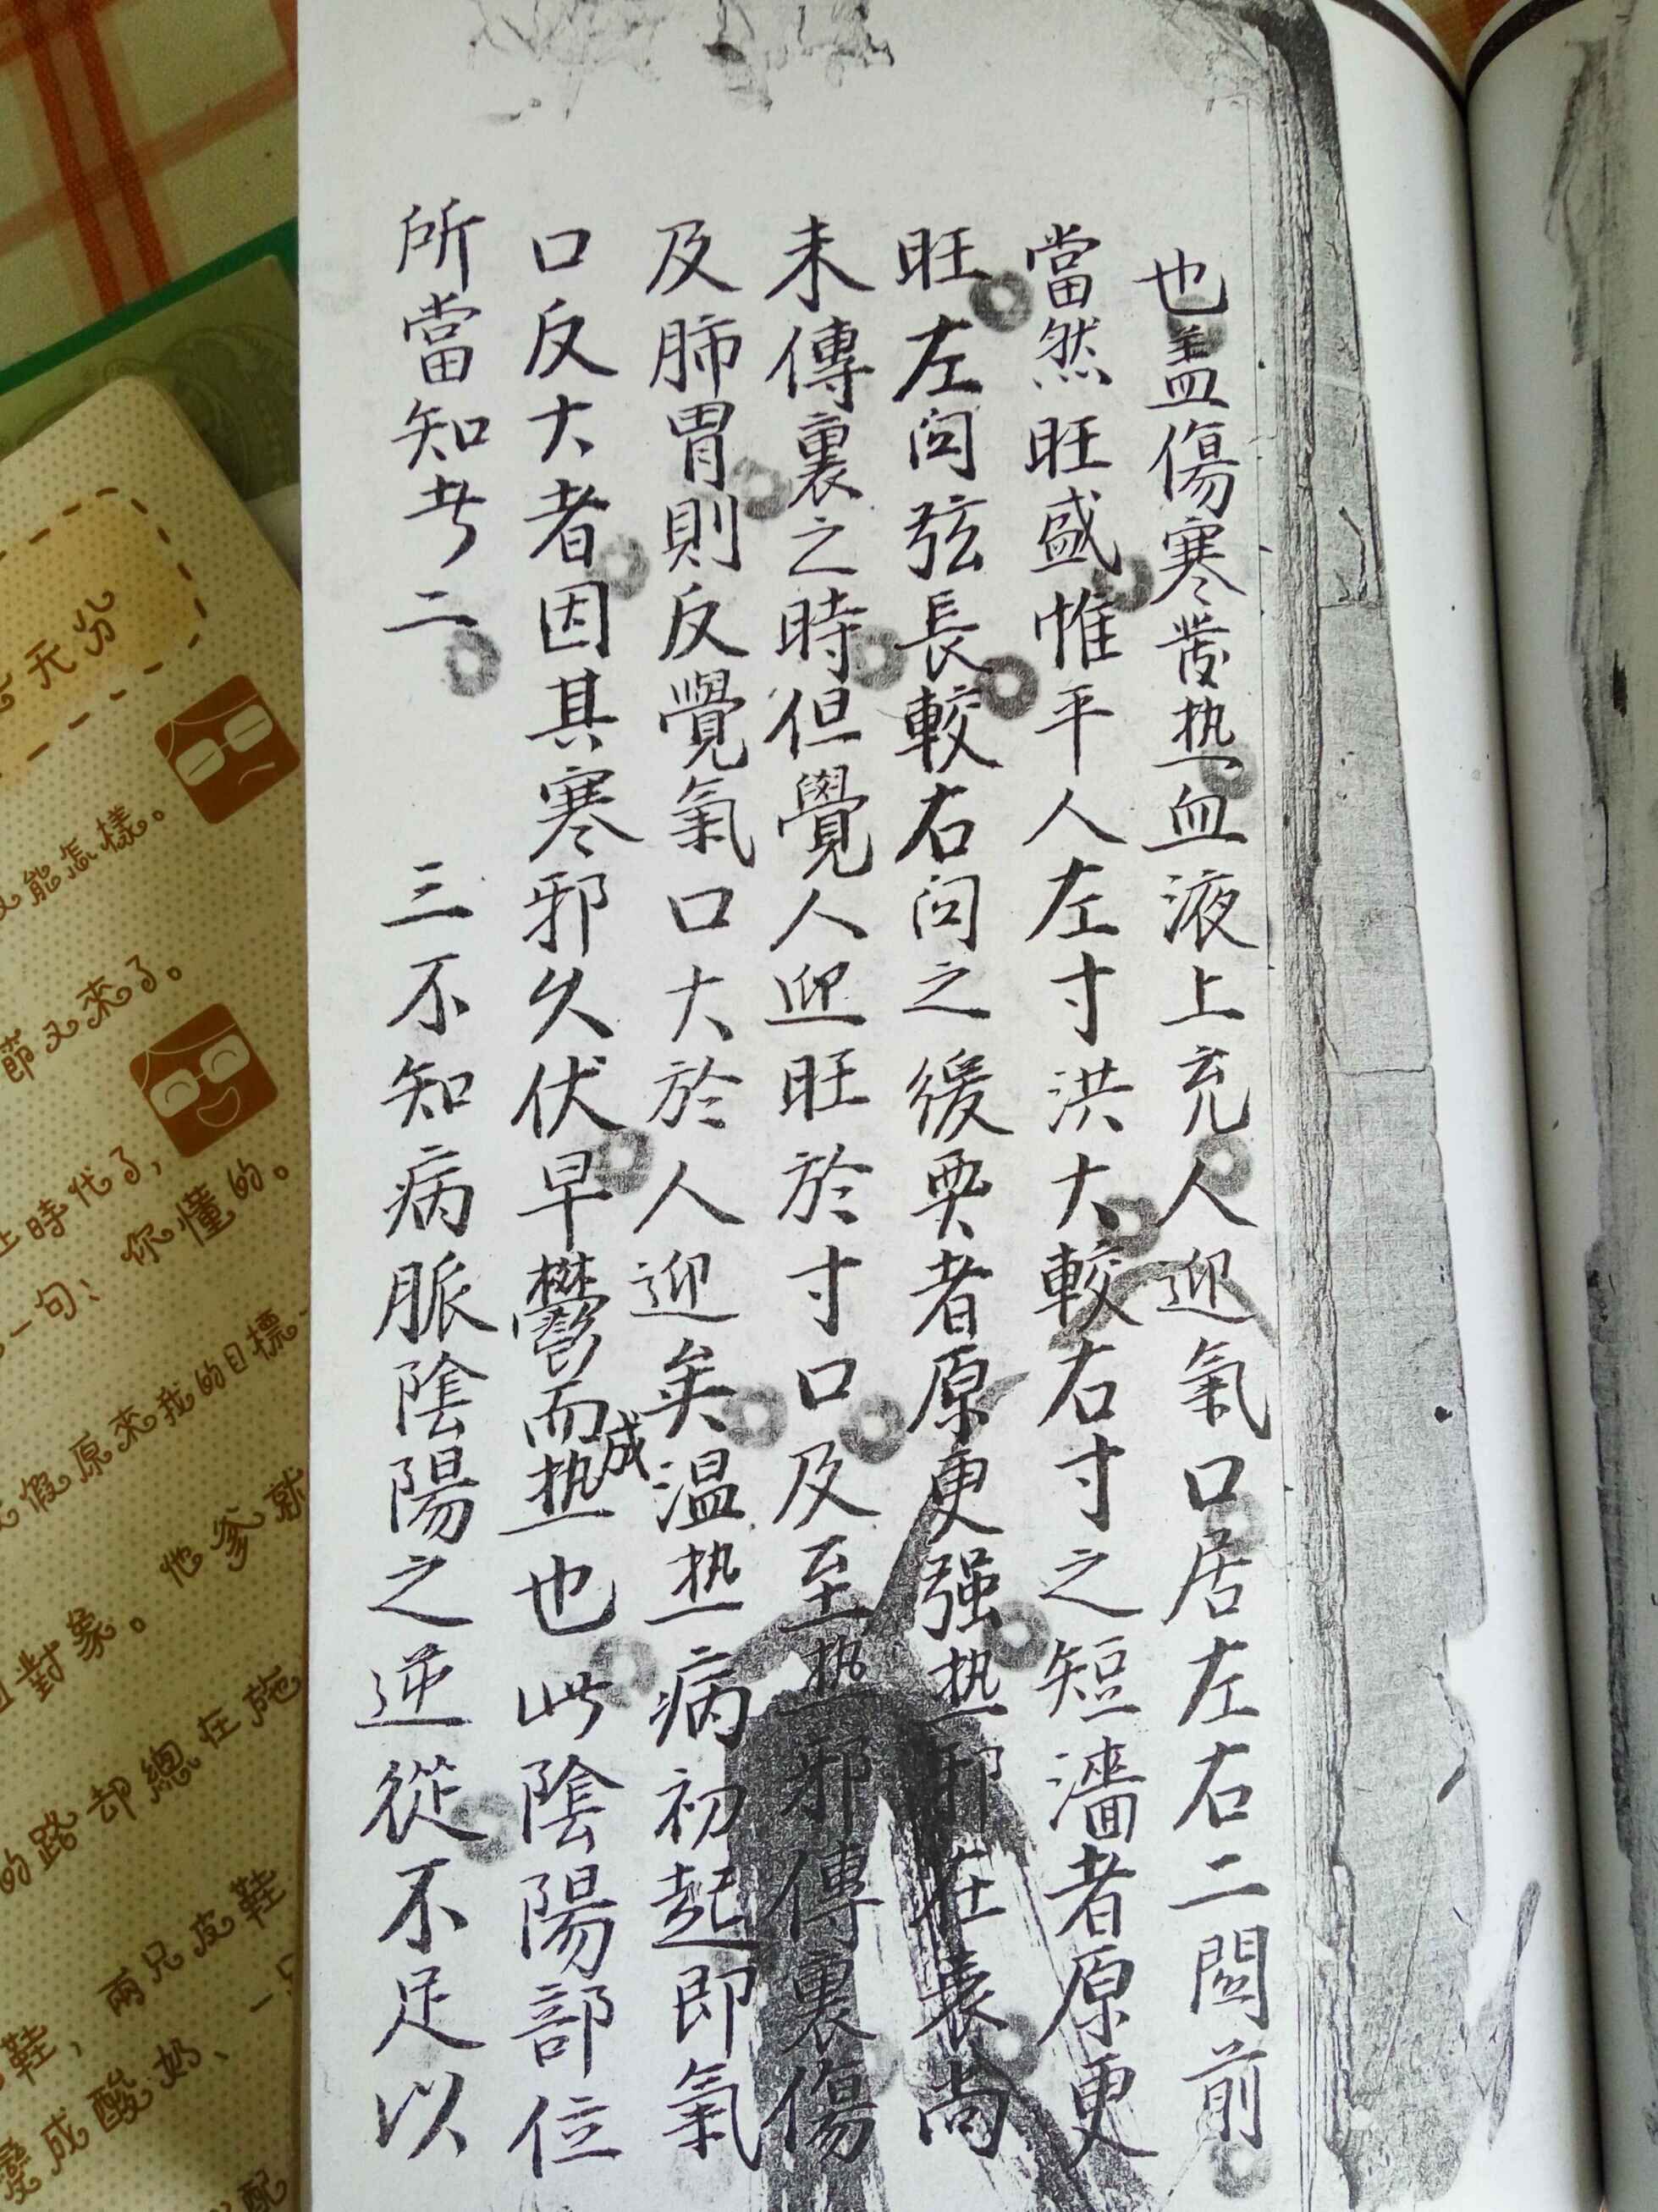 也盖傷寒發热血液上充人迎氣口居左右二関前
當然旺盛惟平人左寸洪大較右寸之短濇者原更
旺左関弦長較右関之緩耎者原更强热邪在表尚
未傳裏之時但覺人迎旺於寸口及至热邪傳裏傷
及肺胃則反覺氣口大於人迎矣温热病初起即氣
口反大者因其寒邪久伏早鬱而成热也此陰陽部位
所當知者二 三不知病脈陰陽之逆從不足以
天分
能怎樣。
節又來了。
時代了,
一句、你懂的。
假原來我的目標
對象。他爹就
的路却總在施
鞋、兩只皮鞋
變成酸奶、一只
配